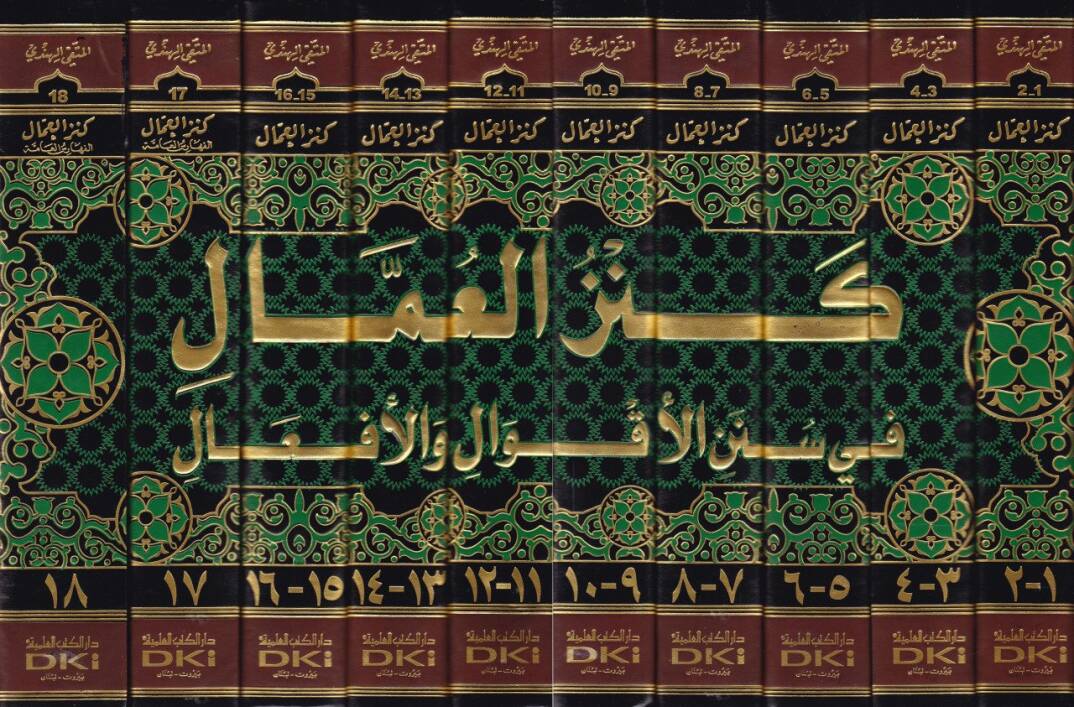 المتقي الهندي المتقي الهندي المتقي الهندي المتقي الهندي المتقي الهندي المتقي الهندي المتقي الهندي المتقي الهندي المتقي الهندي المتقي الهندي
2-1 4-3 6-5 8-7 10-9 12-11 14-13 16-15 17 18
كنز العمال كنز العمال كنز العمال كنز العمال كنز العمال كنز العمال كنز العمال كنز العمال كنز العمال كنز العمال
الفهارس العامة الفهارس العامة
كَنْزُ العُمَّالِ
في سُنَنِ الأقْوَالِ وَالأفعَالِ
١-٢ ٣-٤ ٥-٦ ٧-٨ ٩-١٠ ١١-١٢ ١٣-١٤ ١٥-١٦ ١٧ ١٨
دار الكتب العلمية دار الكتب العلمية دار الكتب العلمية دار الكتب العلمية دار الكتب العلمية دار الكتب العلمية دار الكتب العلمية دار الكتب العلمية دار الكتب العلمية دار الكتب العلمية
DKi DKi DKi DKi DKi DKi DKi DKi DKi DKi
بيروت - لبنان بيروت - لبنان بيروت - لبنان بيروت - لبنان بيروت - لبنان بيروت - لبنان بيروت - لبنان بيروت - لبنان بيروت - لبنان بيروت - لبنان